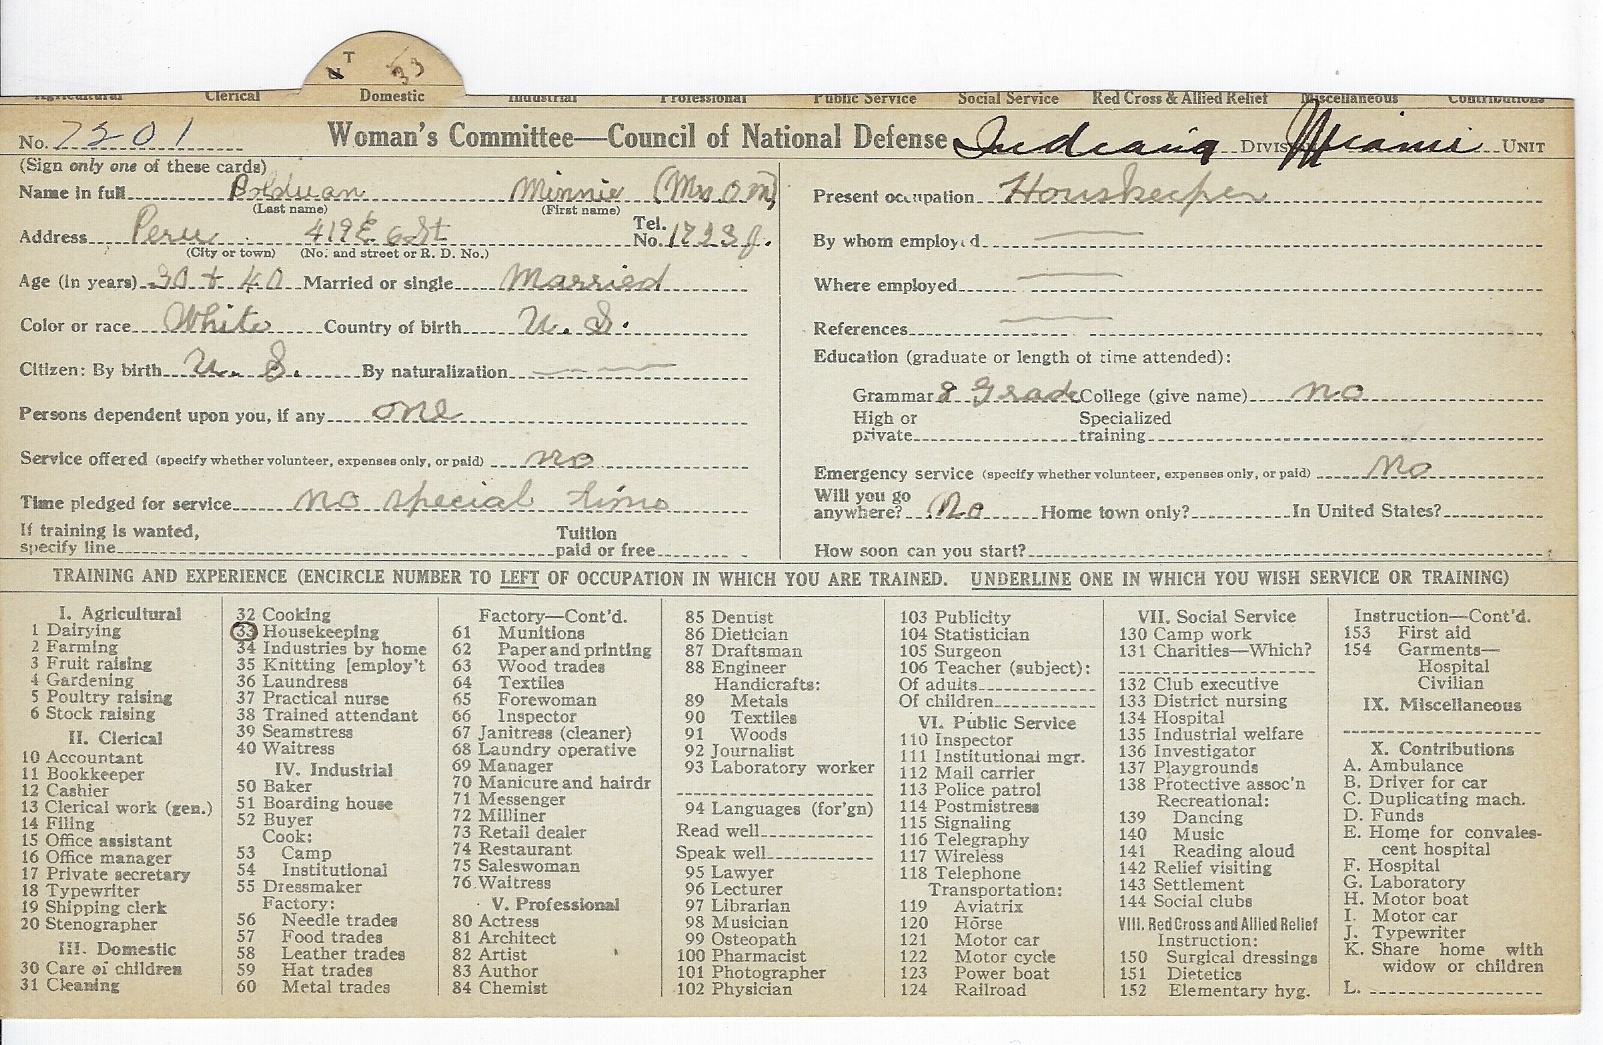 T 33
Agricultural Clerical Domestic Industrial Professional Public Service Social Service Red Cross & Allied Relief Miscellaneous Contributions
No. 7501 Woman's Committee—Council of National Defense Indiana Division Miami Unit
(Sign only one of these cards)
Name in full Bolduan Minnie (Mrs. O M)
(Last name) (First name)
Address Peru 419 E 6 St Tel. No. 1723 J.
(City or town) (No. and street or R. D. No.)
Age (in years) 30 + 40 Married or single Married
Color or race White Country of birth U. S.
Citizen: By birth U. S. By naturalization
Persons dependent upon you, if any one
Service offered (specify whether volunteer, expenses only, or paid) no
Time pledged for service no special time
If training is wanted, specify line Tuition paid or free
Present occupation Houskeeper
By whom employed
Where employed
References
Education (graduate or length of time attended):
Grammar 8 Grade College (give name) no
High or private Specialized training
Emergency service (specify whether volunteer, expenses only, or paid) No
Will you go anywhere? No Home town only? In United States?
How soon can you start?
TRAINING AND EXPERIENCE (ENCIRCLE NUMBER TO LEFT OF OCCUPATION IN WHICH YOU ARE TRAINED. UNDERLINE ONE IN WHICH YOU WISH SERVICE OR TRAINING)
I. Agricultural
1 Dairying
2 Farming
3 Fruit raising
4 Gardening
5 Poultry raising
6 Stock raising
II. Clerical
10 Accountant
11 Bookkeeper
12 Cashier
13 Clerical work (gen.)
14 Filing
15 Office assistant
16 Office manager
17 Private secretary
18 Typewriter
19 Shipping clerk
20 Stenographer
III. Domestic
30 Care of children
31 Cleaning
32 Cooking
33 Housekeeping
34 Industries by home
35 Knitting [employ't
36 Laundress
37 Practical nurse
38 Trained attendant
39 Seamstress
40 Waitress
IV. Industrial
50 Baker
51 Boarding house
52 Buyer
Cook:
53 Camp
54 Institutional
55 Dressmaker
Factory:
56 Needle trades
57 Food trades
58 Leather trades
59 Hat trades
60 Metal trades
Factory—Cont'd.
61 Munitions
62 Paper and printing
63 Wood trades
64 Textiles
65 Forewoman
66 Inspector
67 Janitress (cleaner)
68 Laundry operative
69 Manager
70 Manicure and hairdr
71 Messenger
72 Milliner
73 Retail dealer
74 Restaurant
75 Saleswoman
76 Waitress
V. Professional
80 Actress
81 Architect
82 Artist
83 Author
84 Chemist
85 Dentist
86 Dietician
87 Draftsman
88 Engineer
Handicrafts:
89 Metals
90 Textiles
91 Woods
92 Journalist
93 Laboratory worker
94 Languages (for'gn)
Read well
Speak well
95 Lawyer
96 Lecturer
97 Librarian
98 Musician
99 Osteopath
100 Pharmacist
101 Photographer
102 Physician
103 Publicity
104 Statistician
105 Surgeon
106 Teacher (subject):
Of adults
Of children
VI. Public Service
110 Inspector
111 Institutional mgr.
112 Mail carrier
113 Police patrol
114 Postmistress
115 Signaling
116 Telegraphy
117 Wireless
118 Telephone
Transportation:
119 Aviatrix
120 Horse
121 Motor car
122 Motor cycle
123 Power boat
124 Railroad
VII. Social Service
130 Camp work
131 Charities—Which?
132 Club executive
133 District nursing
134 Hospital
135 Industrial welfare
136 Investigator
137 Playgrounds
138 Protective assoc'n
Recreational:
139 Dancing
140 Music
141 Reading aloud
142 Relief visiting
143 Settlement
144 Social clubs
VIII. Red Cross and Allied Relief
Instruction:
150 Surgical dressings
151 Dietetics
152 Elementary hyg.
Instruction—Cont'd.
153 First aid
154 Garments—
Hospital
Civilian
IX. Miscellaneous
X. Contributions
A. Ambulance
B. Driver for car
C. Duplicating mach.
D. Funds
E. Home for convales-
cent hospital
F. Hospital
G. Laboratory
H. Motor boat
I. Motor car
J. Typewriter
K. Share home with
widow or children
L.